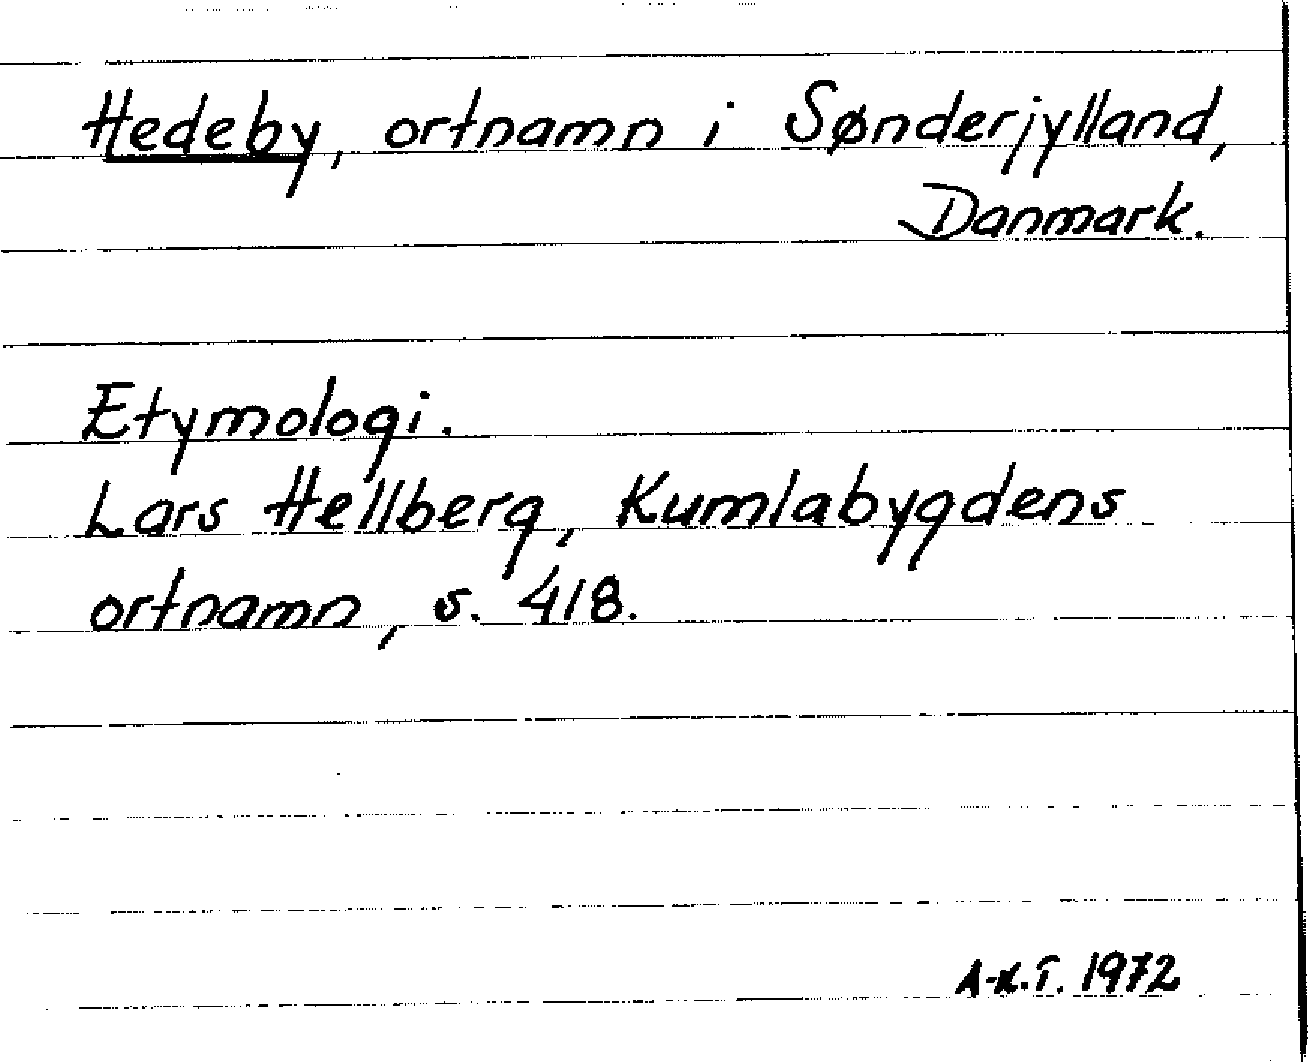 Hedeby, ortnamn i Sønderjylland,
Danmark.
Etymologi.
Lars Hellberg, Kumlabygdens
ortnamn, s. 418.
A-K.T. 1972